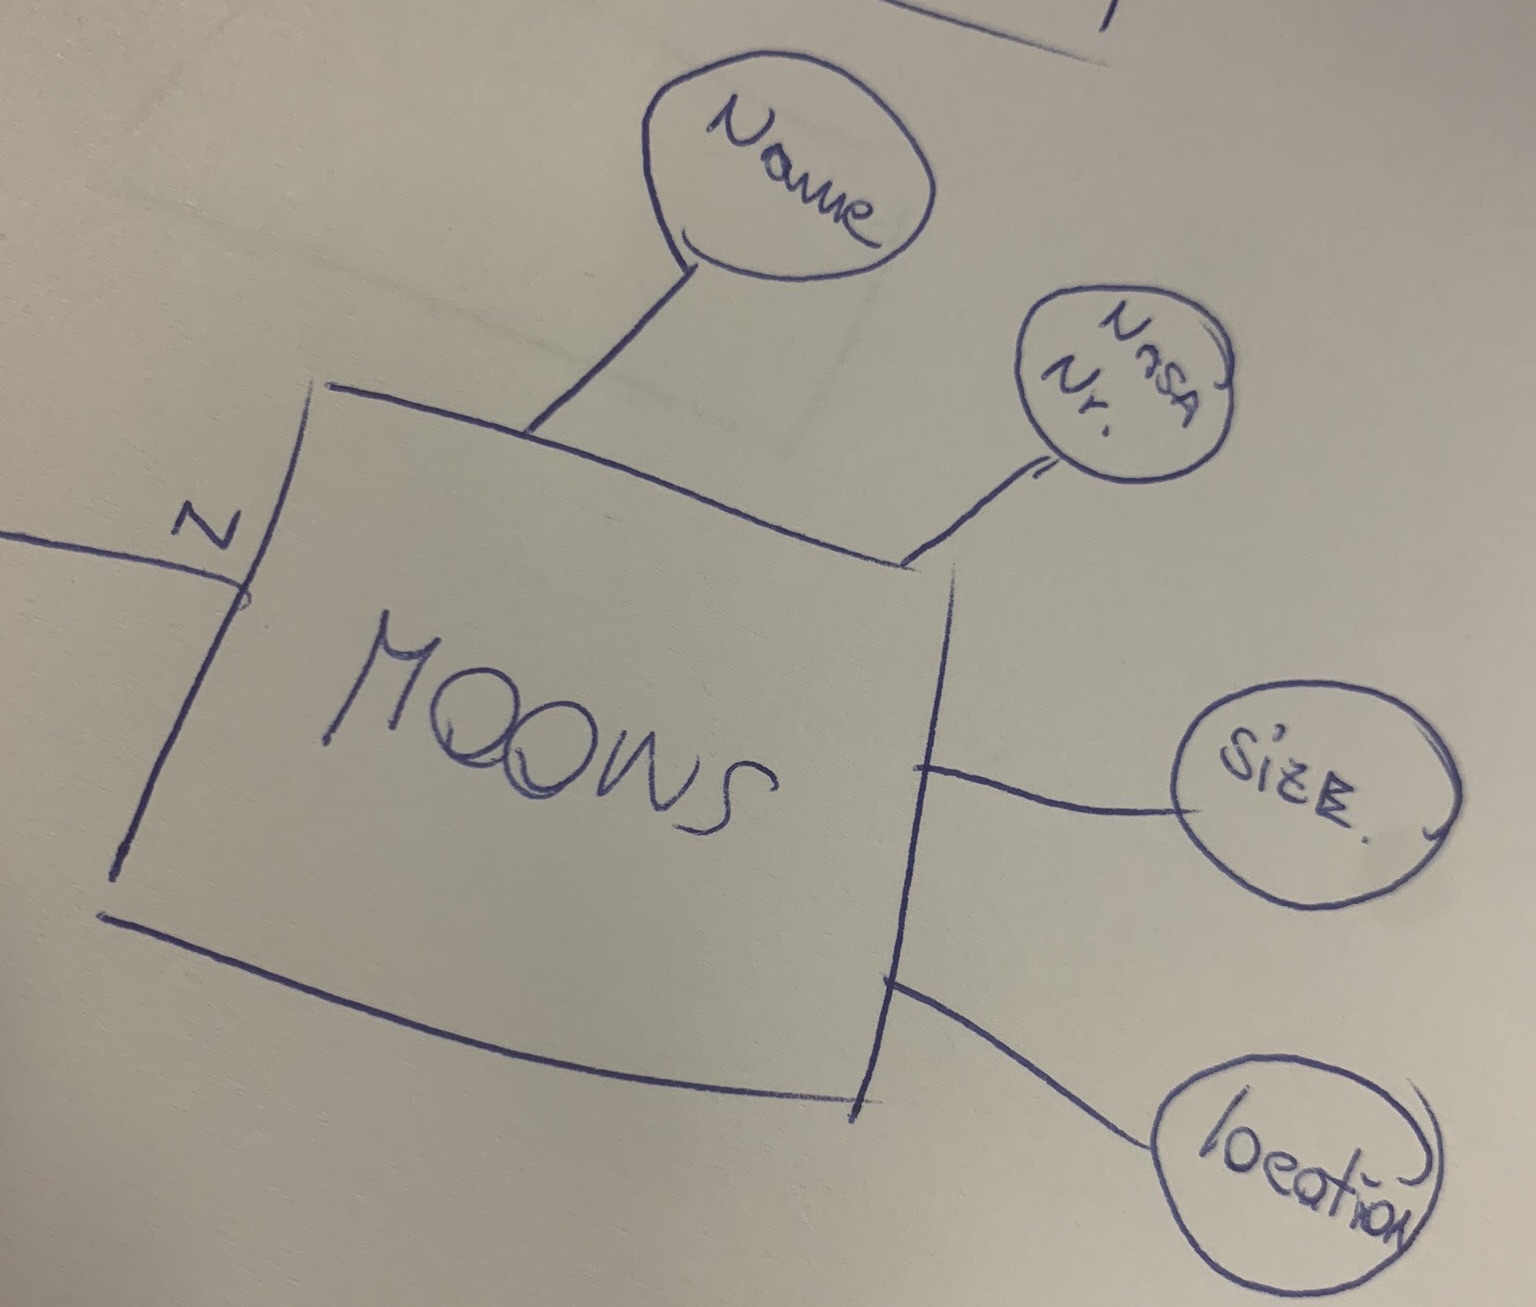 Name
NASA
Nr.
N
MOONS
SIZE.
location